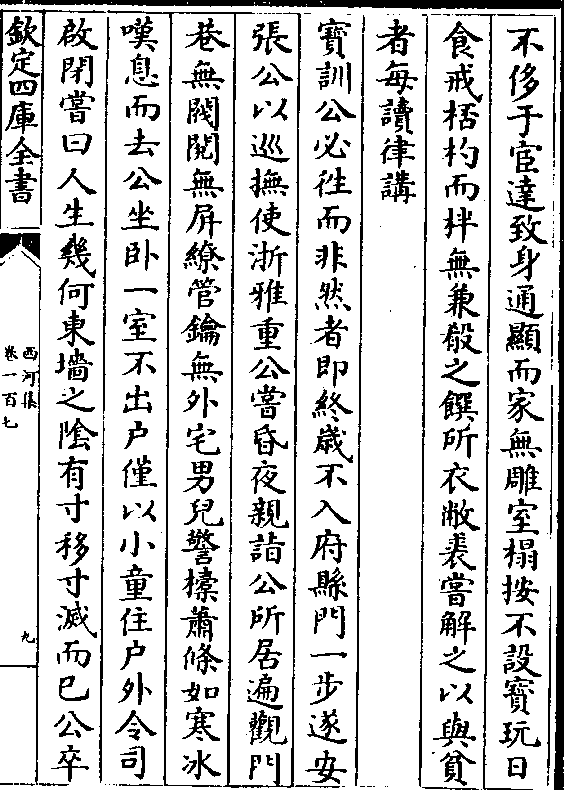 不侈于宦達致身通顯而家無雕室榻按不設寶玩日
食戒栝杓而柈無兼殽之饌所衣敝裘嘗解之以與貧
者每讀律講
寶訓公必徃而非然者即終歲不入府縣門一步遂安
張公以巡撫使浙雅重公嘗昏夜親詣公所居遍觀門
巷無閥閱無屏繚管鑰無外宅男兒警檺蕭條如寒冰
嘆息而去公坐卧一室不出户僅以小童住户外令司
啟閉嘗曰人生幾何東墻之隂有寸移寸滅而已公卒
欽定四庫全書
西河集
卷一百七
九